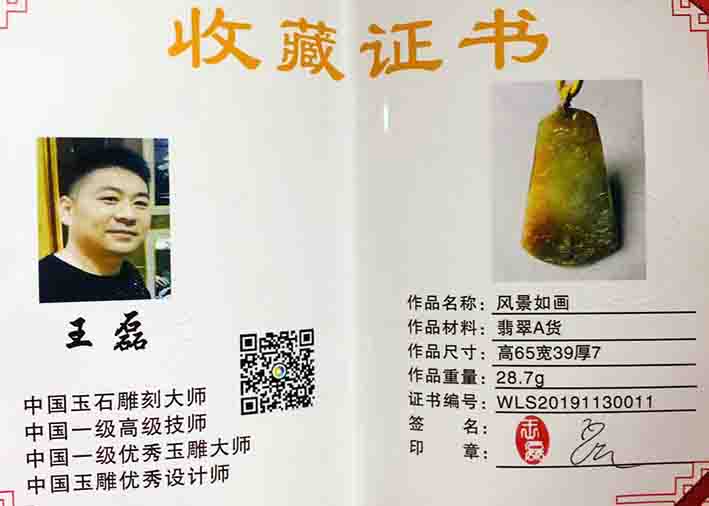 收藏证书
王磊
中国玉石雕刻大师
中国一级高级技师
中国一级优秀玉雕大师
中国玉雕优秀设计师
作品名称：风景如画
作品材料：翡翠A货
作品尺寸：高65宽39厚7
作品重量：28.7g
证书编号：WLS20191130011
签名：
印章：